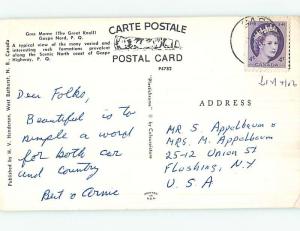 Gros Morne (The Great Knoll)
Gaspe Nord, P. Q.
A typical view of the many varied and
interesting rock formations prevalent
along the Scenic North coast of Gaspe
Highway, P. Q.
CARTE POSTALE
POSTAL CARD
P4782
CANADA
Dear Folks,
Beautiful is to
simple a word
for both car
and country
Bert & Arme
Published by H. V. Henderson, West Bathurst, N. B., Canada
ADDRESS
MR S Appelbaum &
MRS. M. Appelbaum
25-12 Union St
Flushing, N.Y
U.S.A